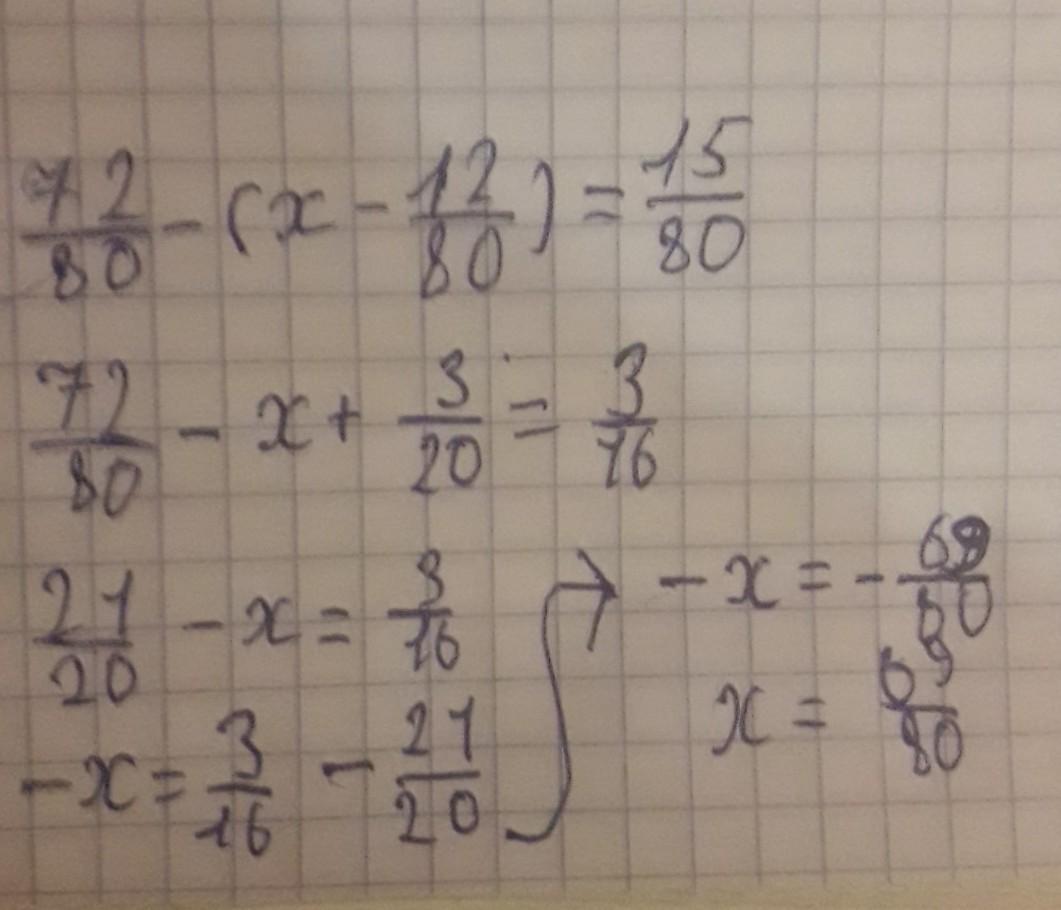 72/80 - (x - 12/80) = 15/80
72/80 - x + 3/20 = 3/16
21/20 - x = 3/16
-x = 3/16 - 21/20
→ -x = - 69/80
x = 69/80